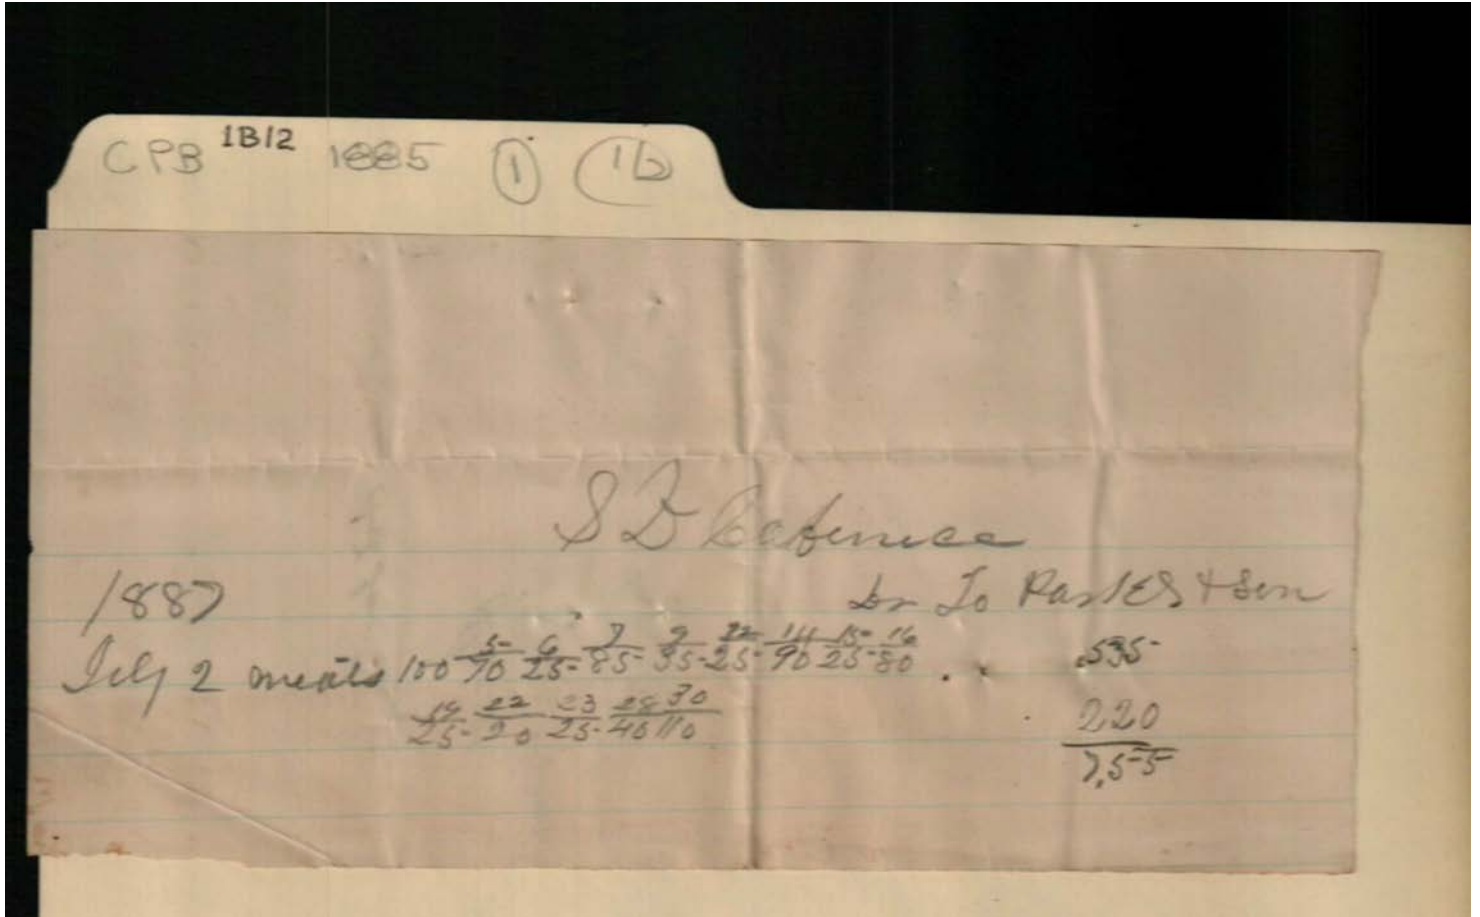 CPB 1B12 1885 1 1b
S D
1887 Dr To Parkes & Son
July 2 meats 100 5/70 6/25 7/85 9/35 12/25 14/90 15/25 16/80 . . 535
19/25 22/20 23/25 28/40 30/110 220
7,55